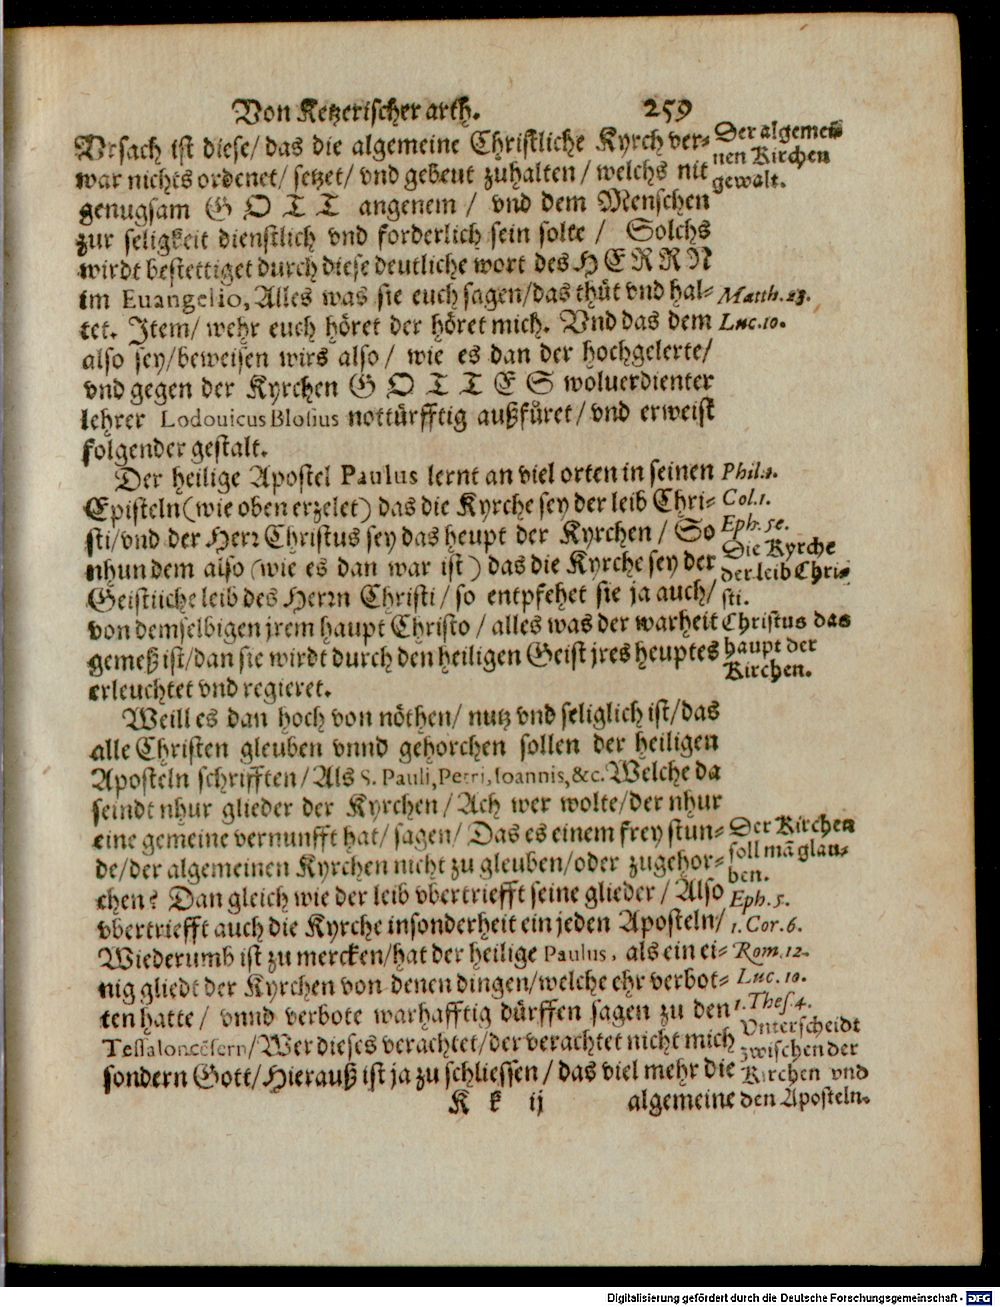 Von Ketzerischer arth. 259
Vrsach ist diese/ das die algemeine Christliche Kyrch ver-
war nichts ordenet/ setzet/ vnd gebeut zuhalten/ welchs nit
genugsam GOTT angenem/ vnd dem Menschen
zur seligkeit dienstlich vnd forderlich sein solte/ Solchs
wirdt bestettiget durch diese deutliche wort des HERRN
im Euangelio, Alles was sie euch sagen/das thüt vnd hal-
tet. Item/ wehr euch höret der höret mich. Vnd das dem
also sey/beweisen wirs also/ wie es dan der hochgelerte/
vnd gegen der Kyrchen GOTTES woluerdienter
lehrer Lodouicus Blosius nottürfftig außfüret/ vnd erweist
folgender gestalt.
Der heilige Apostel Paulus lernt an viel orten in seinen
Episteln (wie oben erzelet) das die Kyrche sey der leib Chri-
sti/vnd der Herr Christus sey das heupt der Kyrchen/ So
nhun dem also (wie es dan war ist) das die Kyrche sey der
Geistliche leib des Herrn Christi/ so entpfehet sie ja auch/
von demselbigen jrem haupt Christo/ alles was der warheit
gemeß ist/dan sie wirdt durch den heiligen Geist jres heuptes
erleuchtet vnd regieret.
Weill es dan hoch von nöthen/ nutz vnd seliglich ist/das
alle Christen gleuben vnnd gehorchen sollen der heiligen
Aposteln schrifften/ Als S. Pauli, Petri, Ioannis, &c. Welche da
seindt nhur glieder der Kyrchen/ Ach wer wolte/der nhur
eine gemeine vernunfft hat/ sagen/ Das es einem frey stun-
de/der algemeinen Kyrchen nicht zu gleuben/oder zugehor-
chen? Dan gleich wie der leib vbertriefft seine glieder/ Also
vbertriefft auch die Kyrche insonderheit ein jeden Aposteln/
Wiederumb ist zu mercken/hat der heilige Paulus, als ein ei-
nig gliedt der Kyrchen von denen dingen/welche ehr verbot-
ten hatte/ vnnd verbote warhafftig dürffen sagen zu den
Tessalonicēsern/Wer dieses verachtet/der verachtet nicht mich
sondern Gott/Hierauß ist ja zu schliessen/ das viel mehr die
K k ij algemeine
Der algemei-
nen Kirchen
gewalt.
Matth. 23.
Luc. 10.
Phil. 1.
Col. 1.
Eph. 5.
Die Kyrche
der leib Chri-
sti.
Christus das
haupt der
Kirchen.
Der Kirchen
soll mā glau-
ben.
Eph. 5.
1. Cor. 6.
Rom. 12.
Luc. 10.
1. Thes. 4.
Vnterscheidt
zwischen der
Kirchen vnd
den Aposteln.
Digitalisierung gefördert durch die Deutsche Forschungsgemeinschaft - DFG